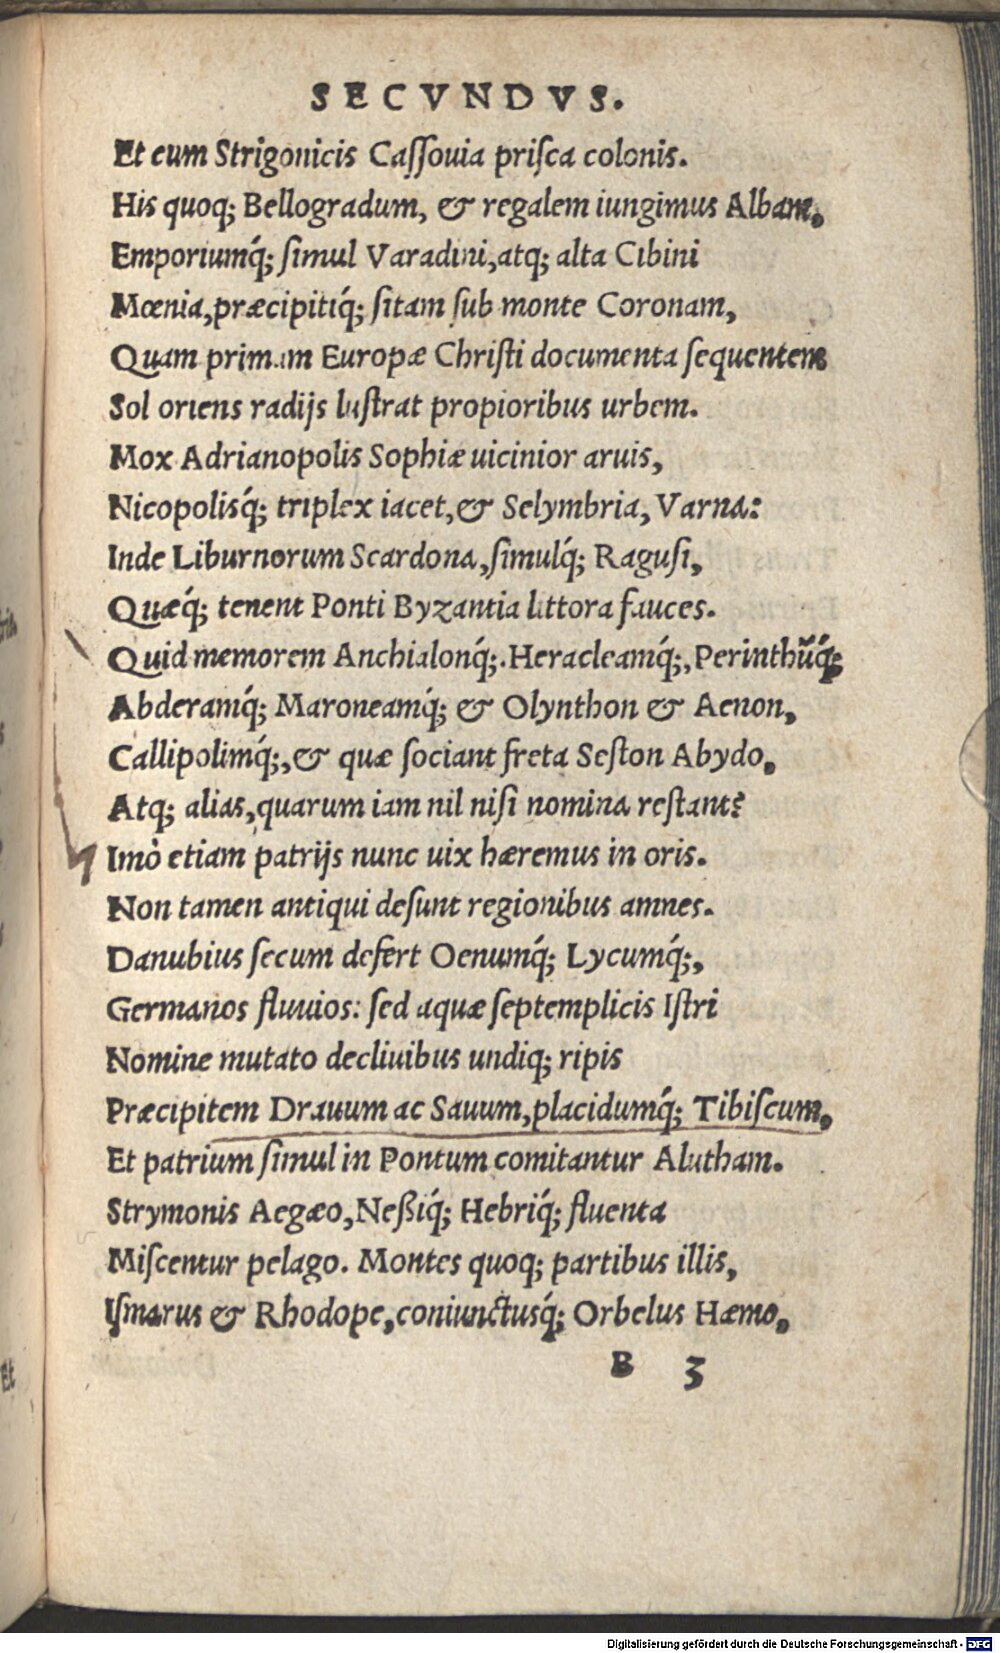 SECVNDVS.
Et cum Strigonicis Caſſouia priſca colonis.
His quoq; Bellogradum, & regalem iungimus Albam,
Emporiumq́; ſimul Varadini, atq; alta Cibini
Mœnia, præcipitiq́; ſitam ſub monte Coronam,
Quam primam Europæ Chriſti documenta ſequentem
Sol oriens radijs luſtrat propioribus urbem.
Mox Adrianopolis Sophiæ uicinior aruis,
Nicopolisq́; triplex iacet, & Selymbria, Varna:
Inde Liburnorum Scardona, ſimulq́; Raguſi,
Quæq́; tenent Ponti Byzantia littora fauces.
Quid memorem Anchialonq́;. Heracleamq́;, Perinthũq́;
Abderamq́; Maroneamq́; & Olynthon & Aenon,
Callipolimq́;, & quæ ſociant freta Seſton Abydo,
Atq; alias, quarum iam nil niſi nomina reſtant?
Imò etiam patrijs nunc uix hæremus in oris.
Non tamen antiqui deſunt regionibus amnes.
Danubius ſecum defert Oenumq́; Lycumq́;,
Germanos fluuios: ſed aquæ ſeptemplicis Iſtri
Nomine mutato decliuibus undiq; ripis
Præcipitem Drauum ac Sauum, placidumq́; Tibiſcum,
Et patrium ſimul in Pontum comitantur Alutham.
Strymonis Aegæo, Neßiq́; Hebriq́; fluenta
Miſcentur pelago. Montes quoq; partibus illis,
Iſmarus & Rhodope, coniunctusq́; Orbelus Hæmo,
B 3
Et
Digitalisierung gefördert durch die Deutsche Forschungsgemeinschaft - DFG